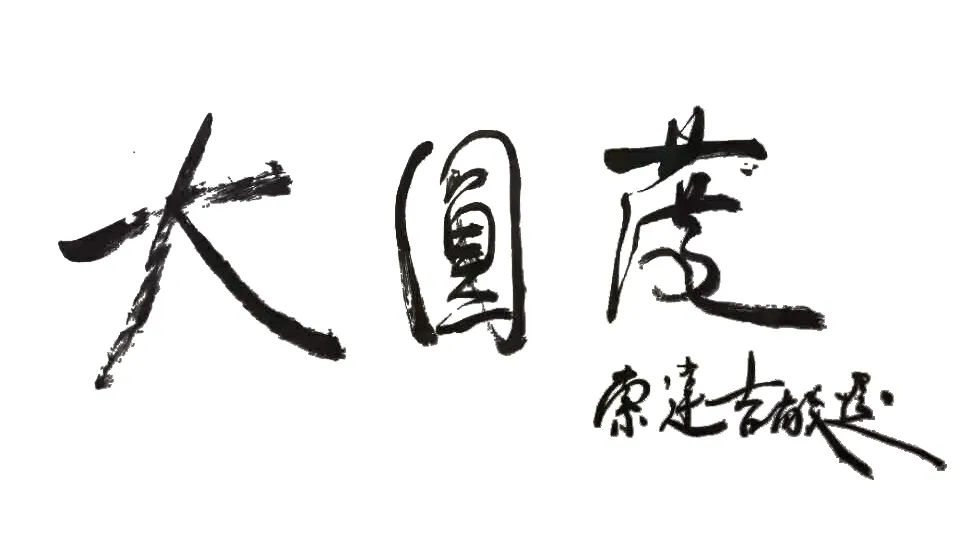 大圓
索達吉敬題